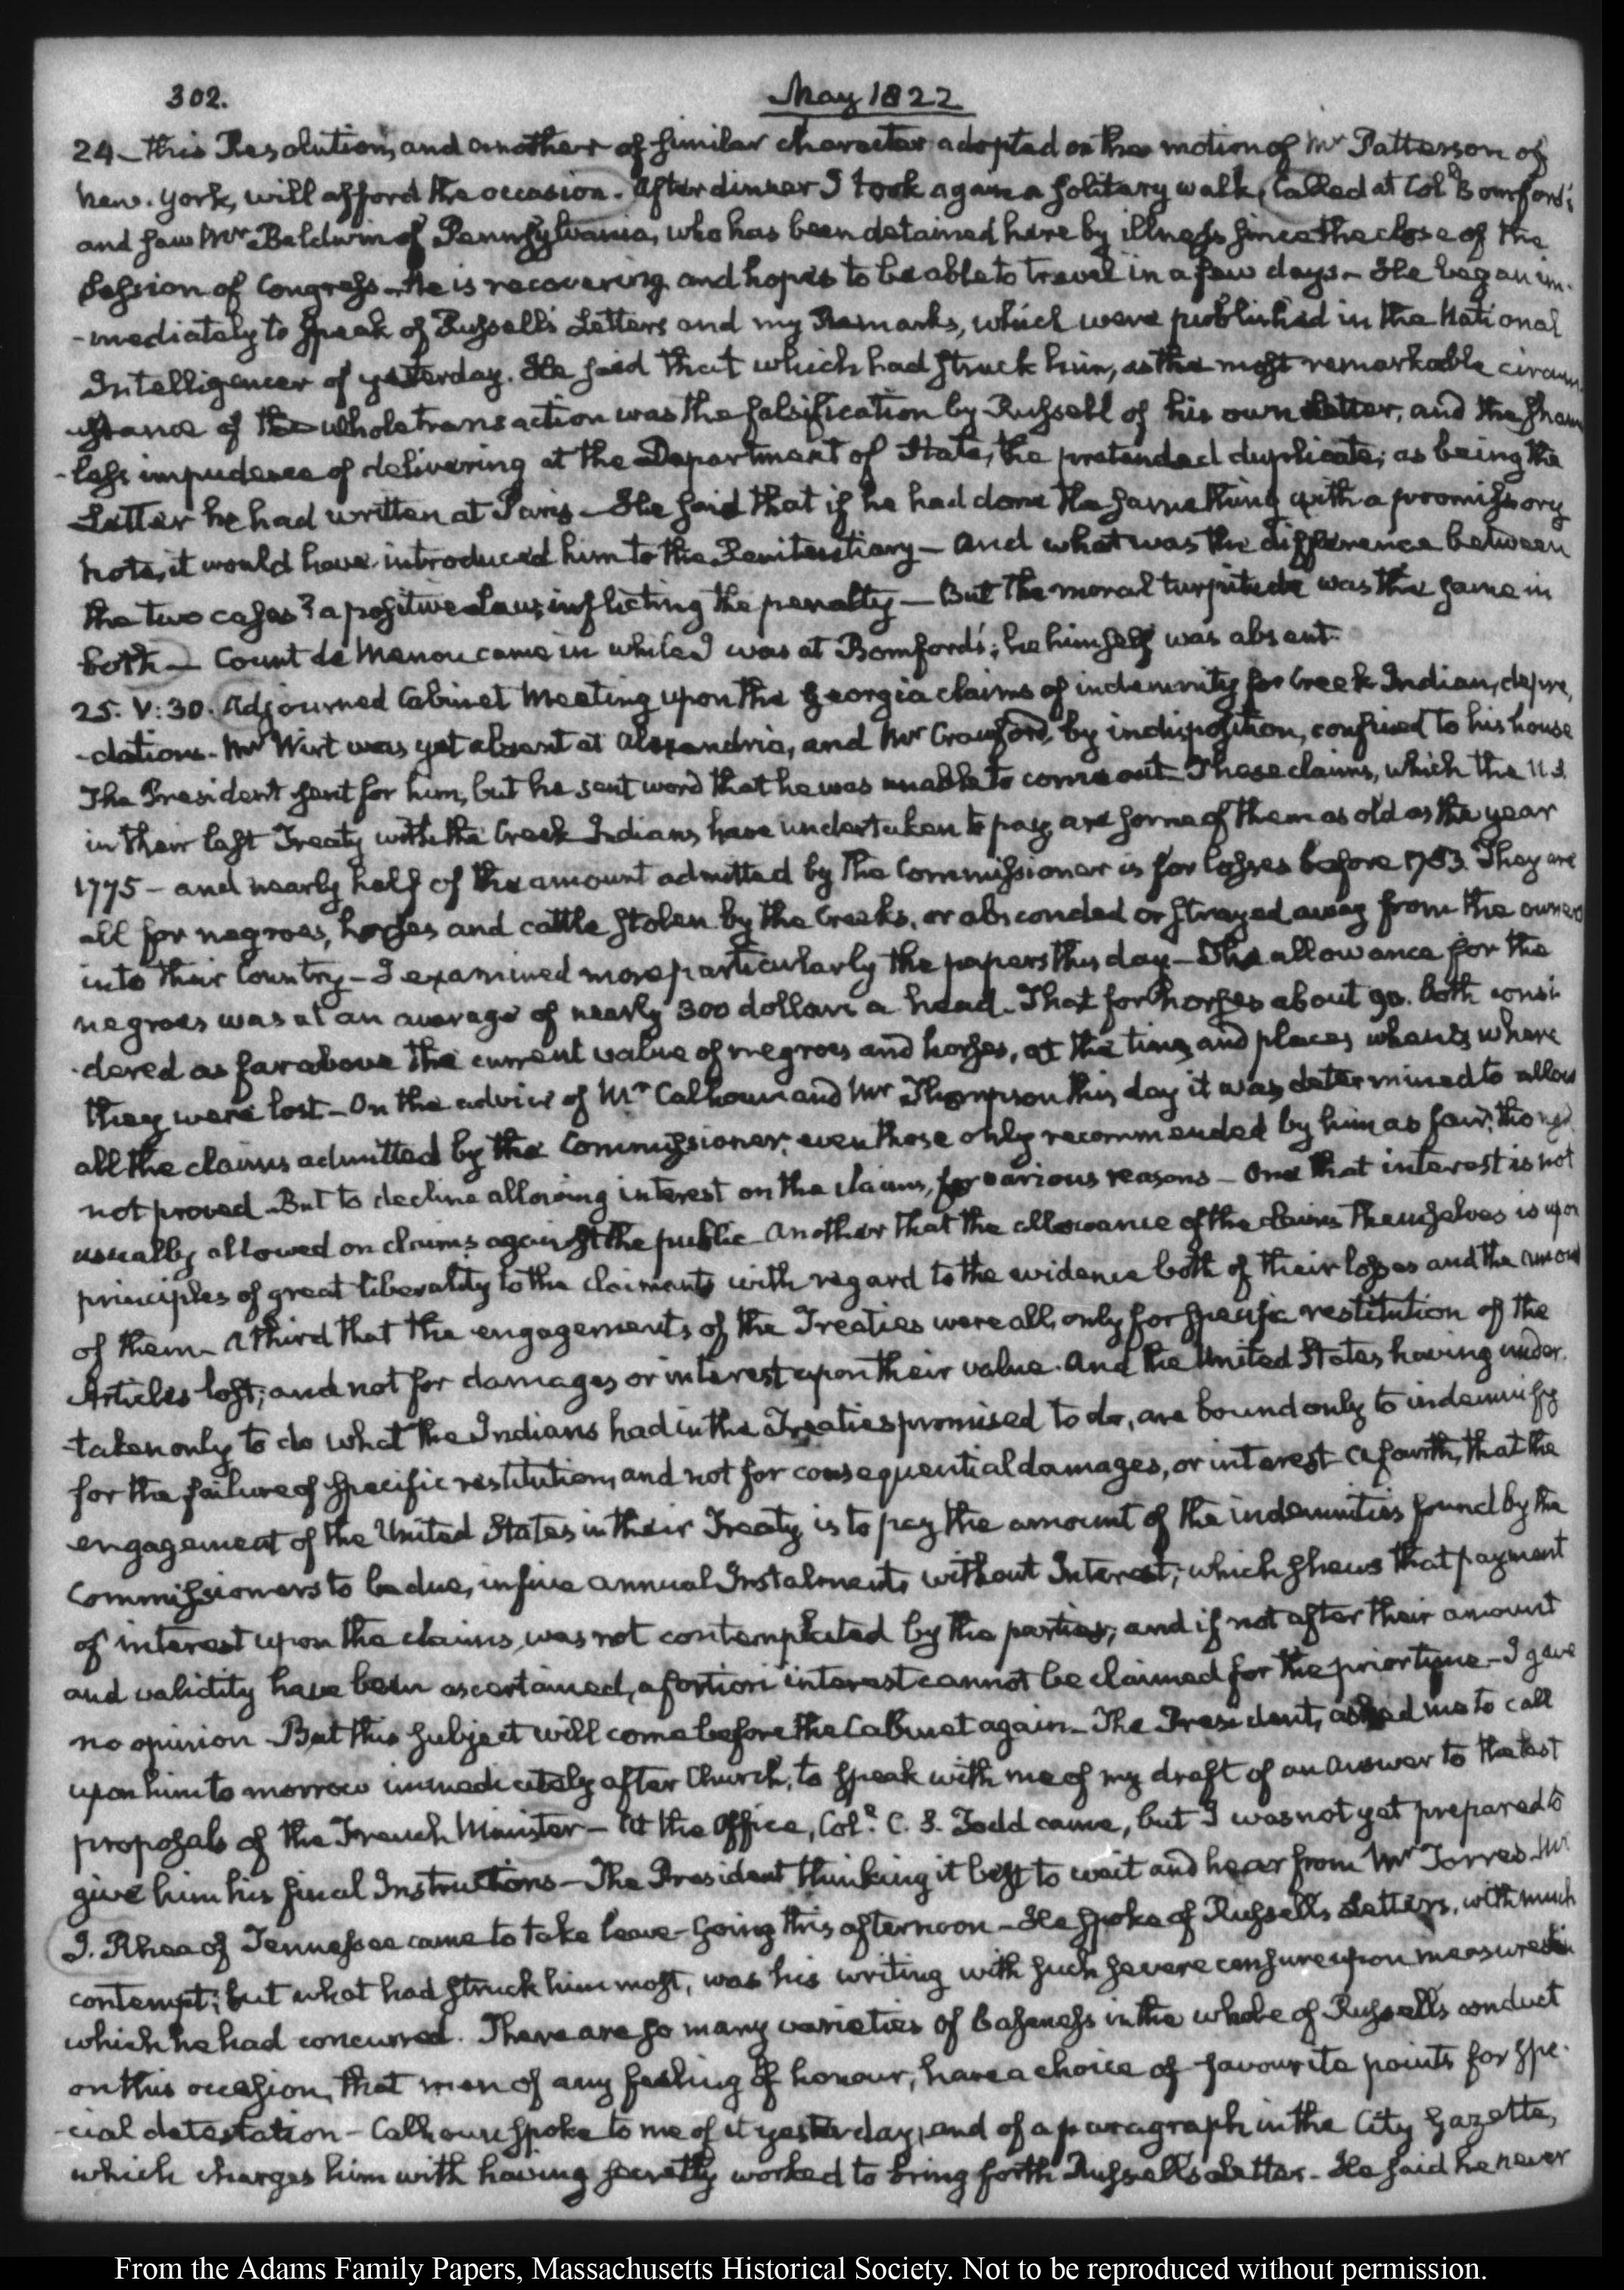 302.
May 1822
24 - this Resolution, and another of similar character adopted on the motion of Mr Patterson of
New-York, will afford the occasion. After dinner I took again a solitary walk, Called at Coll. Bomford's
and saw Mr Baldwin of Pennsylvania, who has been detained here by illness since the close of the
Session of Congress - He is recovering and hopes to be able to travel in a few days - He began im-
-mediately to speak of Russell's Letters and my Remarks, which were published in the National
Intelligencer of yesterday. He said that which had struck him, as the most remarkable circum
-stance of the whole transaction was the falsification by Russell of his own Letter, and the shame
-less impudence of delivering at the Department of State, the pretended duplicate, as being the
Letter he had written at Paris - He said that if he had done the same thing with a promissory
note, it would have introduced him to the Penitentiary - And what was the difference between
the two cases? a positive Law, inflicting the penalty - But the moral turpitude was the same in
both - Count de Menou came in while I was at Bomford's; he himself was absent.
25. V:30. Adjourned Cabinet Meeting upon the Georgia claims of indemnity for Creek Indian, depre,
-dations. Mr Wirt was yet absent at Alexandria, and Mr Crawford, by indisposition, confined to his house
The President sent for him, but he sent word that he was unable to come out - These claims, which the U.S.
in their last Treaty with the Creek Indians have undertaken to pay are some of them as old as the year
1775 - and nearly half of the amount admitted by the Commissioner is for losses before 1783. They are
all for negroes, horses and cattle stolen by the Creeks, or absconded or strayed away from the owners
into their Country - I examined more particularly the papers this day - The allowance for the
negroes was at an average of nearly 300 dollars a head. That for horses about 90. both consi
-dered as far above the current value of negroes and horses, at the times and places when & where
they were lost - On the advice of Mr Calhoun and Mr Thompson this day it was determined to allow
all the claims admitted by the Commissioner; even those only recommended by him as fair, though
not proved - But to decline allowing interest on the claims, for various reasons - One that interest is not
usually allowed on claims against the public - Another that the allowance of the claims themselves is upon
principles of great liberality to the claimants with regard to the evidence both of their losses and the amount
of them - A third that the engagements of the Treaties were all, only for specific restitution of the
Articles lost; and not for damages or interest upon their value. And the United States having under.
-taken only to do what the Indians had in the Treaties promised to do, are bound only to indemnify
for the failure of specific restitution, and not for consequential damages, or interest - A fourth, that the
engagement of the United States in their Treaty is to pay the amount of the indemnities found by the
Commissioners to be due, in five annual Instalments without Interest; which shews that payment
of interest upon the claims, was not contemplated by the parties; and if not after their amount
and validity have been ascertained, a fortiori interest cannot be claimed for the prior time - I gave
no opinion - But this subject will come before the Cabinet again - The President, asked me to call
upon him to morrow immediately after Church, to speak with me of my draft of an answer to the last
proposals of the French Minister - At the Office, Coll. C. S. Todd came, but I was not yet prepared to
give him his final Instructions - The President thinking it best to wait and hear from Mr Torres. Mr
J. Rhea of Tennessee came to take leave - Going this afternoon - He spoke of Russell's Letters, with much
contempt; but what had struck him most, was his writing with such severe censure upon measures in
which he had concurred. There are so many varieties of baseness in the whole of Russell's conduct
on this occasion, that men of any feeling of honour, have a choice of favourite points for spe-
-cial detestation - Calhoun spoke to me of it yesterday, and of a paragraph in the City Gazette,
which charges him with having secretly worked to bring forth Russell's Letter - He said he never
From the Adams Family Papers, Massachusetts Historical Society. Not to be reproduced without permission.